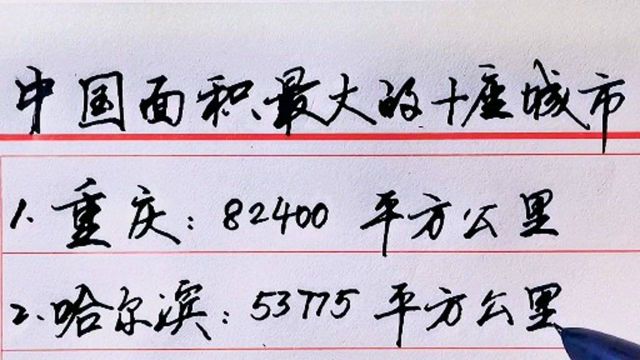 中国面积最大的十座城市
1.重庆：82400 平方公里
2.哈尔滨：53775 平方公里